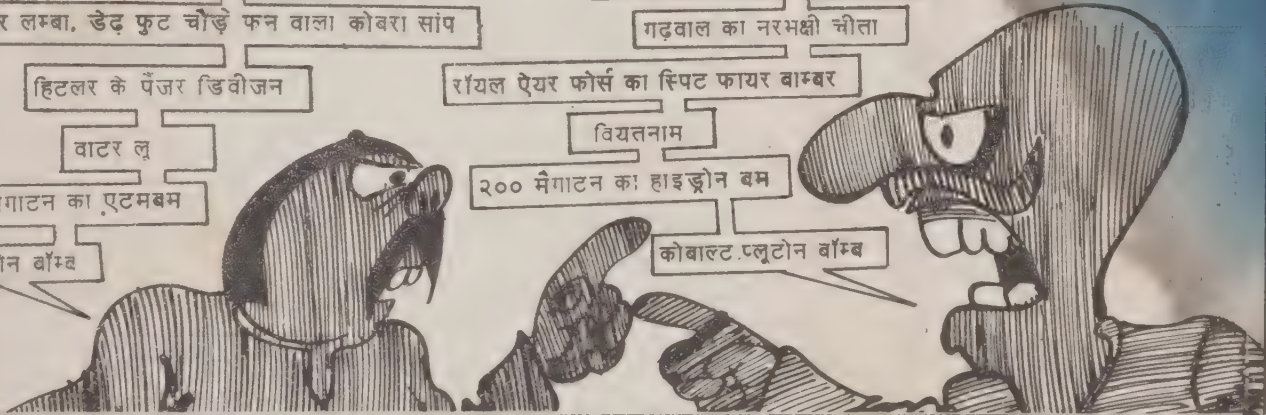 लम्बा, डेढ़ फुट चौड़े फन वाला कोबरा सांप
हिटलर के पैंजर डिवीजन
वाटर लू
का एटमबम
बॉम्ब
गढ़वाल का नरभक्षी चीता
रॉयल ऐयर फोर्स का स्पिट फायर बाम्बर
वियतनाम
२०० मैगाटन का हाइड्रोन बम
कोबाल्ट प्लूटोन बॉम्ब